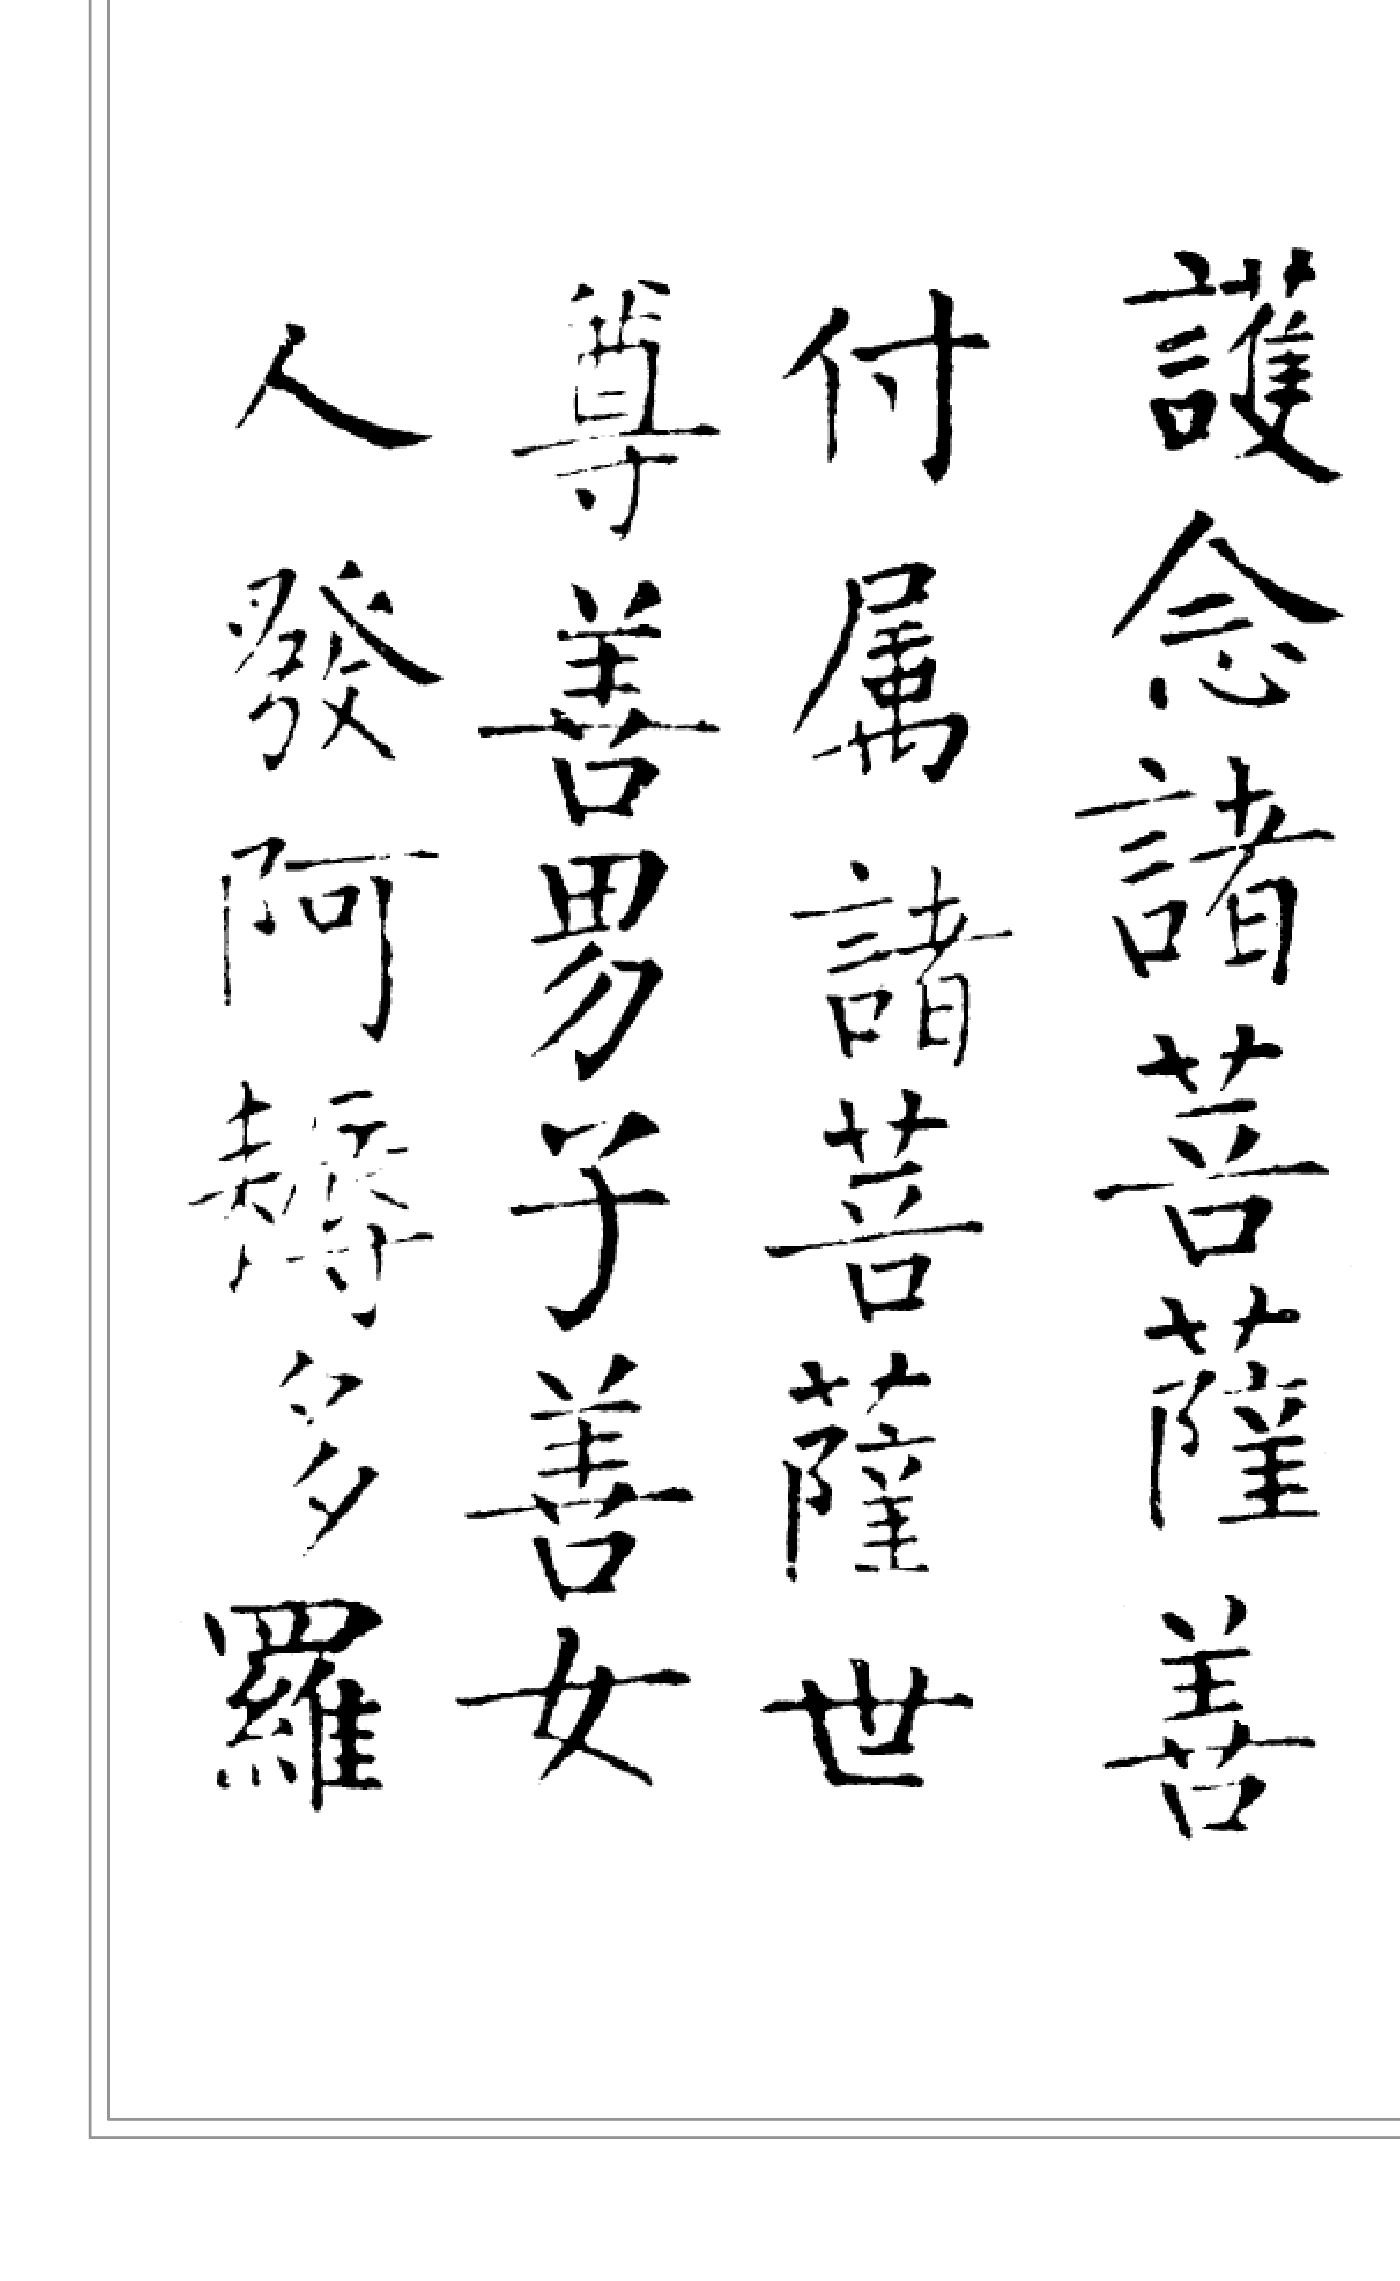 護念諸菩薩善
付属諸菩薩世
尊善男子善女
人發阿耨多羅